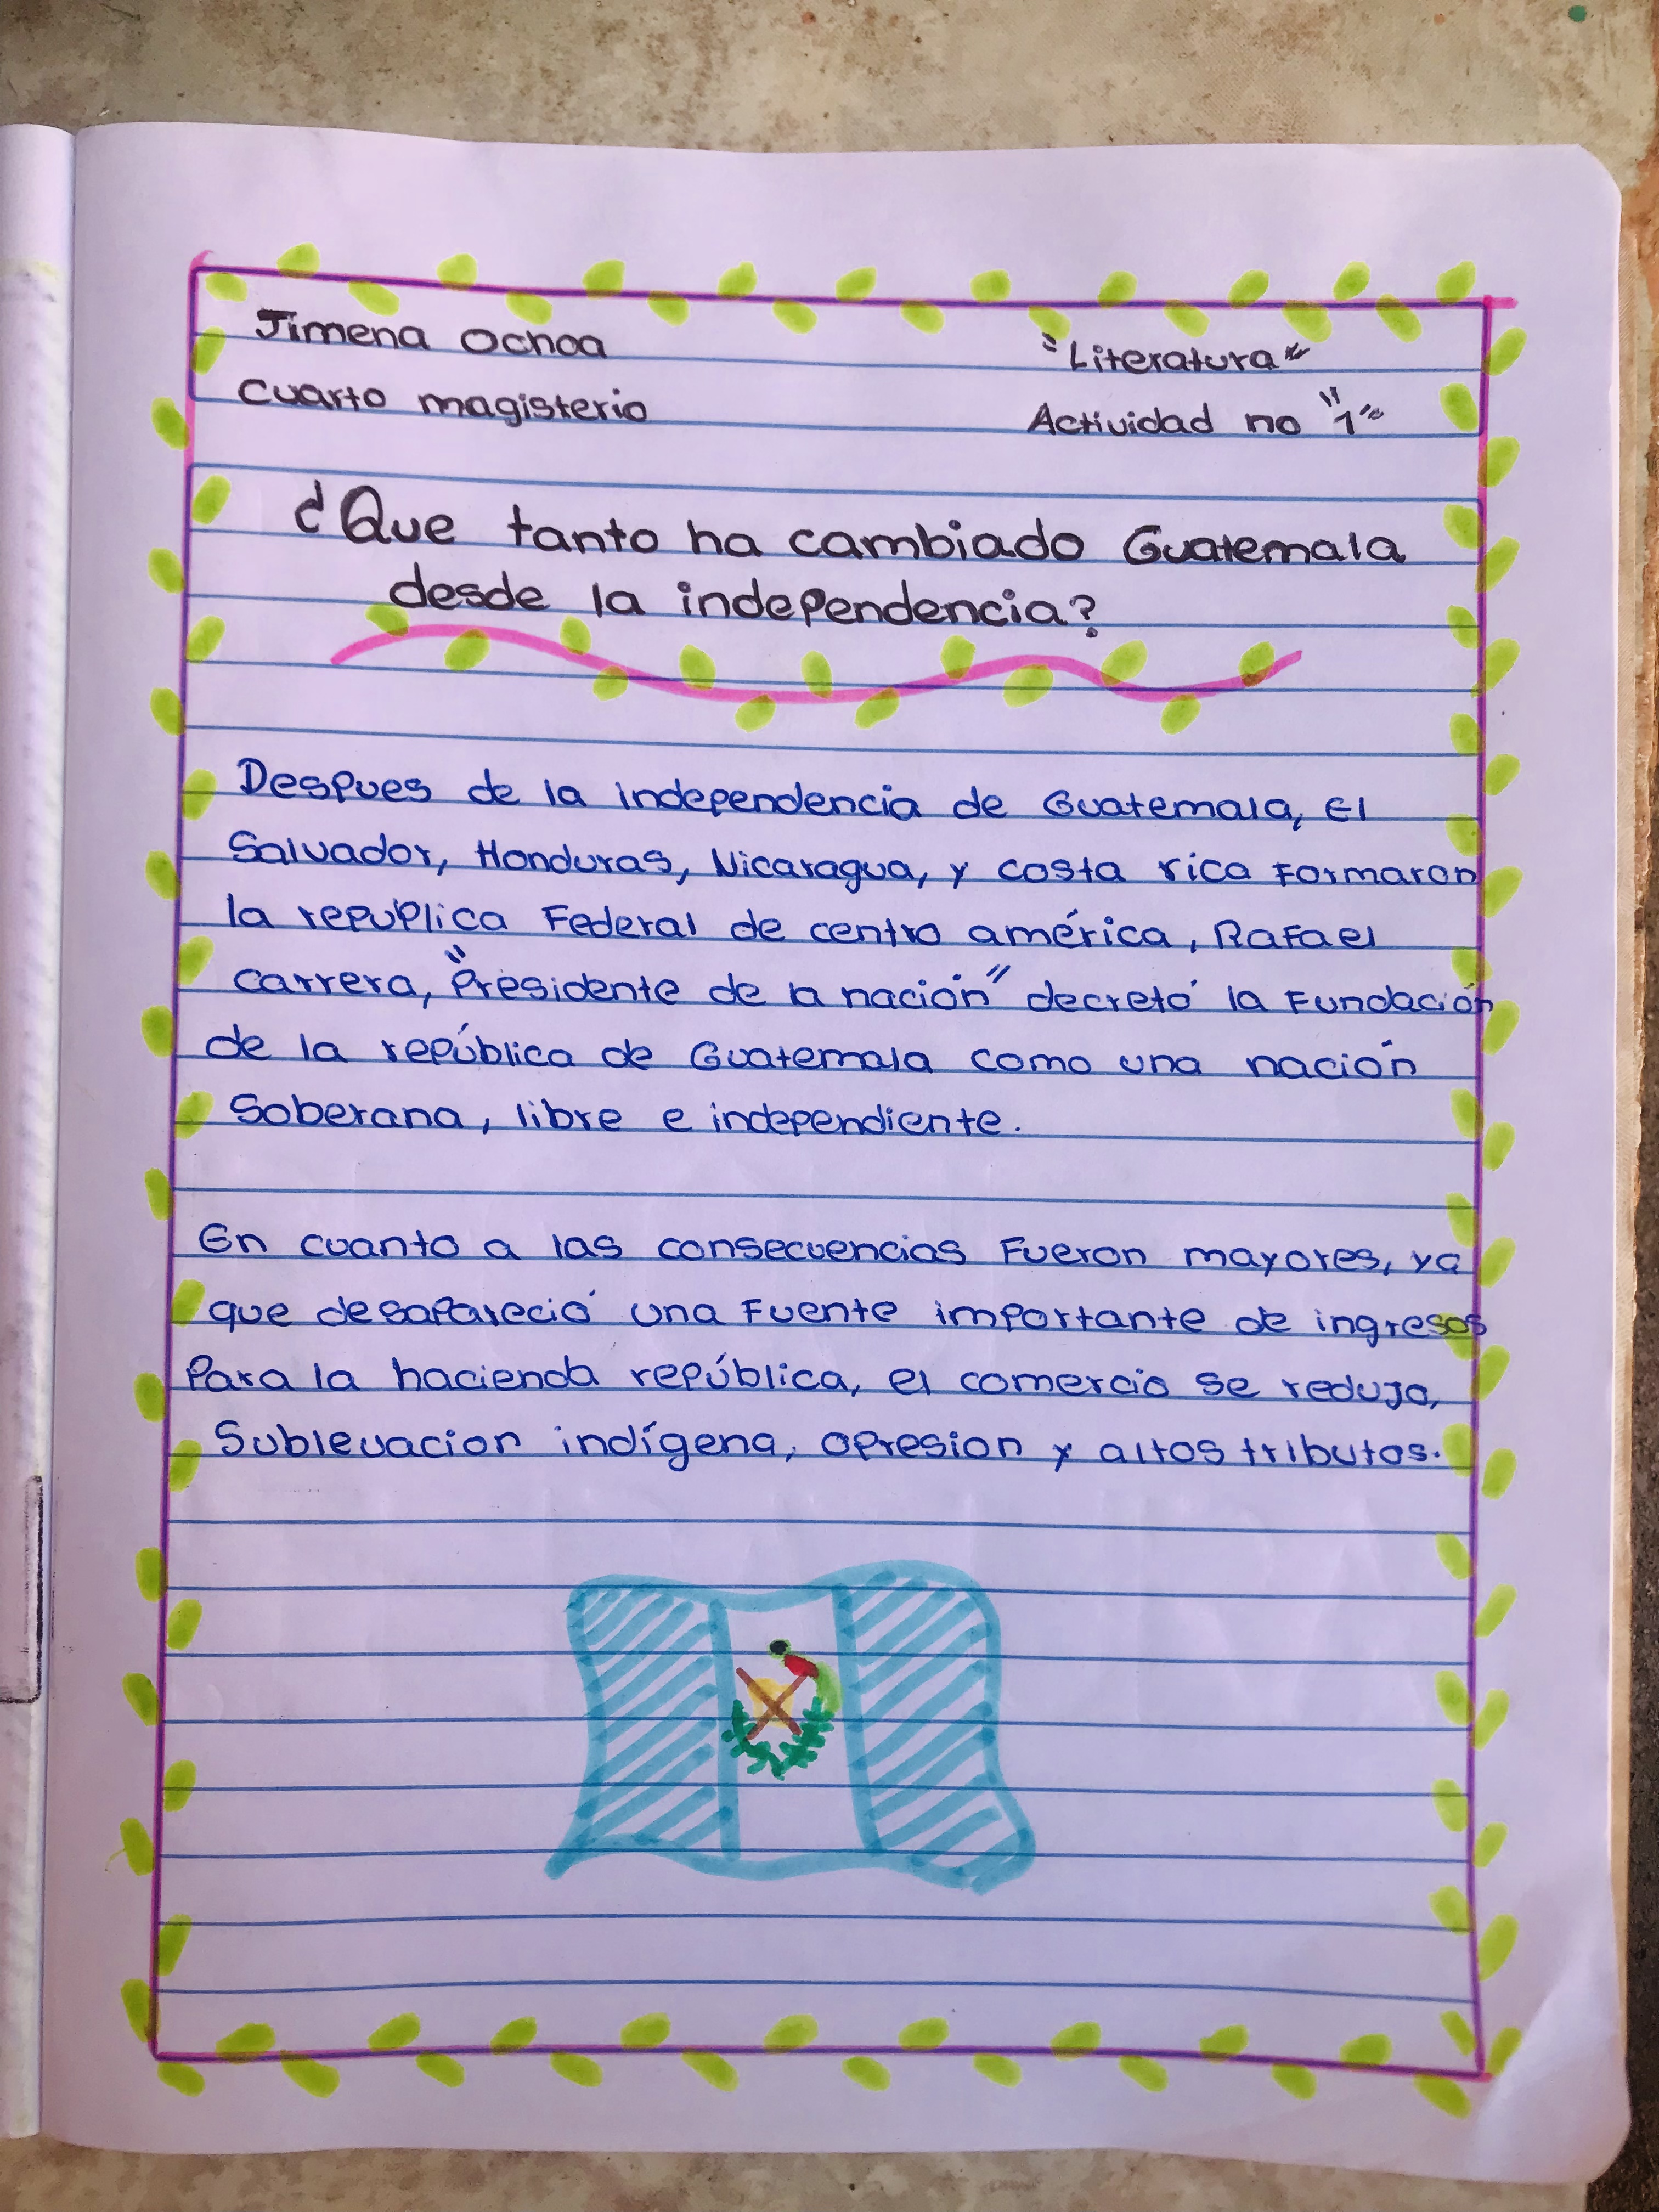 Jimena Ochoa
"Literatura"
Cuarto magisterio
Actividad no "1"
¿Que tanto ha cambiado Guatemala
desde la independencia?
Despues de la independencia de Guatemala, El
Salvador, Honduras, Nicaragua, y costa rica Formaron
la republica Federal de centro américa, Rafael
Carrera, "Presidente de la nación" decretó la Fundación
de la república de Guatemala como una nación
Soberana, libre e independiente.
En cuanto a las consecuencias Fueron mayores, ya
que desapareció una Fuente importante de ingresos
Para la hacienda república, el comercio se redujo,
Sublevacion indígena, opresion y altos tributos.